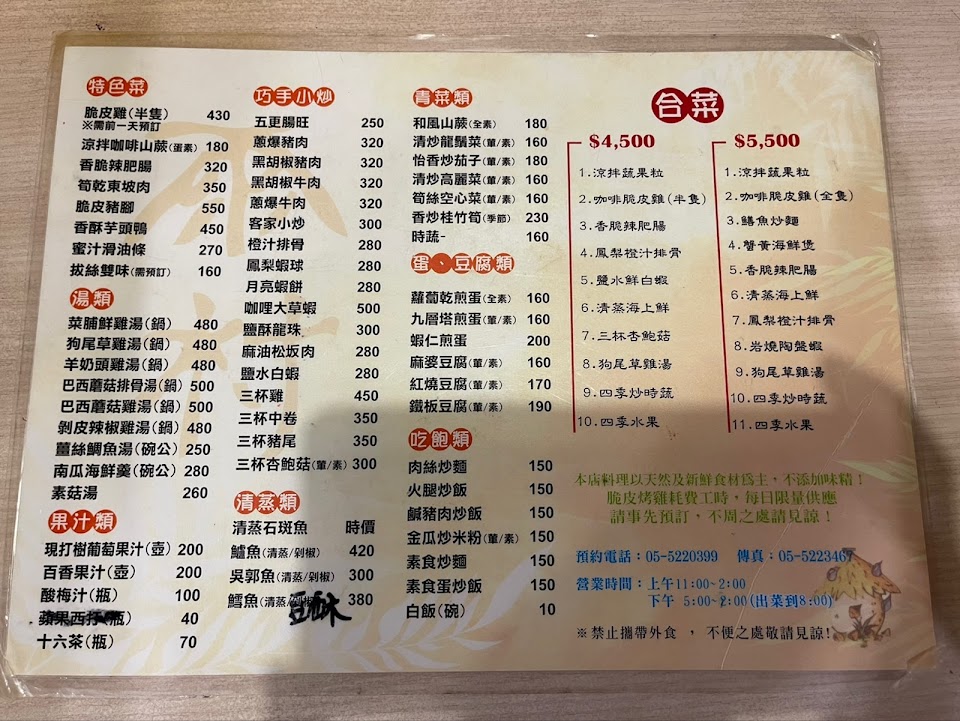 特色菜
脆皮雞(半隻) 430
※需前一天預訂
涼拌咖啡山蕨(蛋素) 180
香脆辣肥腸 320
筍乾東坡肉 350
脆皮豬腳 550
香酥芋頭鴨 450
蜜汁滑油條 270
拔絲雙味(需預訂) 160
湯類
菜脯鮮雞湯(鍋) 480
狗尾草雞湯(鍋) 480
羊奶頭雞湯(鍋) 480
巴西蘑菇排骨湯(鍋) 500
巴西蘑菇雞湯(鍋) 500
剝皮辣椒雞湯(鍋) 480
薑絲鯛魚湯(碗公) 250
南瓜海鮮羹(碗公) 280
素菇湯 260
果汁類
現打樹葡萄果汁(壺) 200
百香果汁(壺) 200
酸梅汁(瓶) 100
蘋果西打(瓶) 40
十六茶(瓶) 70
巧手小炒
五更腸旺 250
蔥爆豬肉 320
黑胡椒豬肉 320
黑胡椒牛肉 320
蔥爆牛肉 320
客家小炒 300
橙汁排骨 280
鳳梨蝦球 280
月亮蝦餅 280
咖哩大草蝦 500
鹽酥龍珠 300
麻油松坂肉 280
鹽水白蝦 280
三杯雞 450
三杯中卷 350
三杯豬尾 350
三杯杏鮑菇(葷/素) 300
清蒸類
清蒸石斑魚 時價
鱸魚(清蒸/剁椒) 420
吳郭魚(清蒸/剁椒) 300
鱈魚(清蒸/剁椒) 380
豆酥
青菜類
和風山蕨(全素) 180
清炒龍鬚菜(葷/素) 160
怡香炒茄子(葷/素) 180
清炒高麗菜(葷/素) 160
筍絲空心菜(葷/素) 160
香炒桂竹筍(季節) 230
時蔬- 160
蛋、豆腐類
蘿蔔乾煎蛋(全素) 160
九層塔煎蛋(葷/素) 160
蝦仁煎蛋 200
麻婆豆腐(葷/素) 160
紅燒豆腐(葷/素) 170
鐵板豆腐(葷/素) 190
吃飽類
肉絲炒麵 150
火腿炒飯 150
鹹豬肉炒飯 150
金瓜炒米粉(葷/素) 150
素食炒麵 150
素食蛋炒飯 150
白飯(碗) 10
合菜
$4,500
1.涼拌蔬果粒
2.咖啡脆皮雞(半隻)
3.香脆辣肥腸
4.鳳梨橙汁排骨
5.鹽水鮮白蝦
6.清蒸海上鮮
7.三杯杏鮑菇
8.狗尾草雞湯
9.四季炒時蔬
10.四季水果
$5,500
1.涼拌蔬果粒
2.咖啡脆皮雞(全隻)
3.鱔魚炒麵
4.蟹黃海鮮煲
5.香脆辣肥腸
6.清蒸海上鮮
7.鳳梨橙汁排骨
8.岩燒陶盤蝦
9.狗尾草雞湯
10.四季炒時蔬
11.四季水果
本店料理以天然及新鮮食材為主，不添加味精！
脆皮烤雞耗費工時，每日限量供應
請事先預訂，不周之處請見諒！
預約電話：05-5220399 傳真：05-5223467
營業時間：上午11:00~2:00
下午 5:00~2:00(出菜到8:00)
※禁止攜帶外食 ，不便之處敬請見諒!